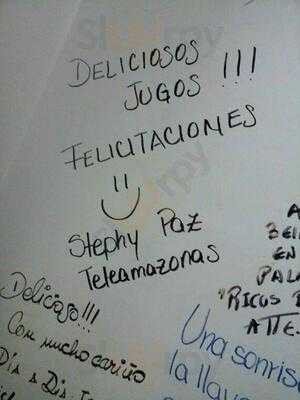 DELICIOSOS
JUGOS !!!
FELICITACIONES
!!
Stephy Paz
Teleamazonas
Delicioso!!!
Con mucho cariño
Día a Día
A
EN
PALA
"RICOS
ATTE.
Una sonris
la llave